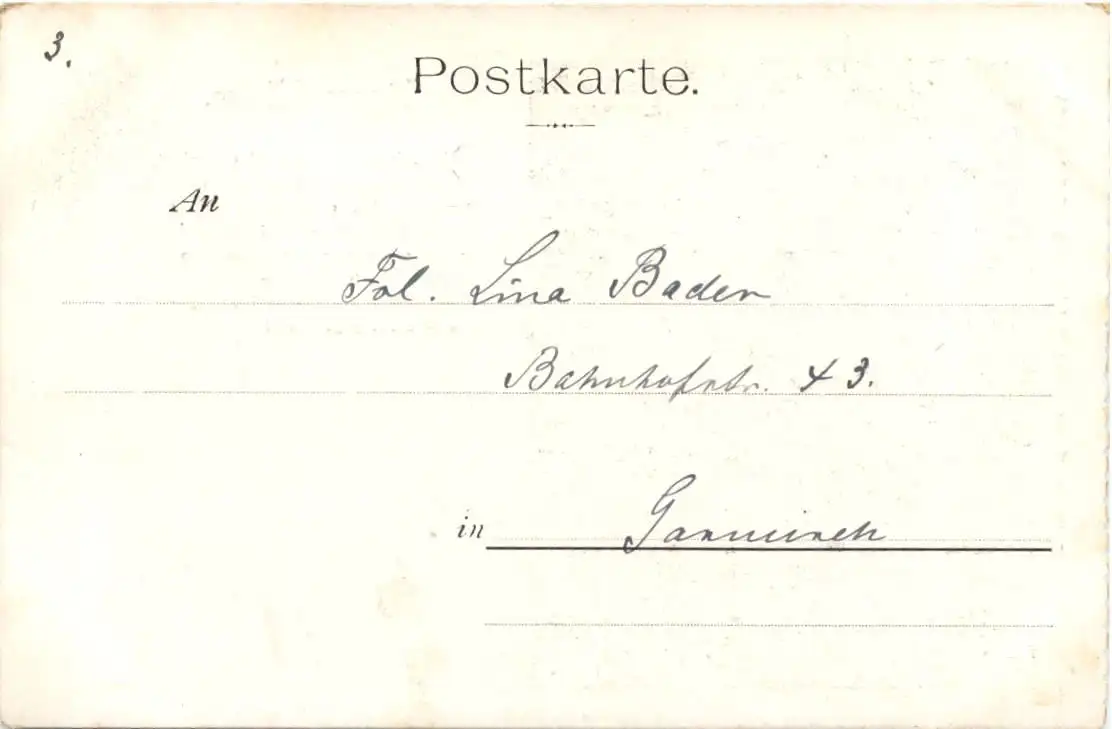 3.
Postkarte.
An
Frl. Lina Bader
Bahnhofstr. 43.
in Garmisch